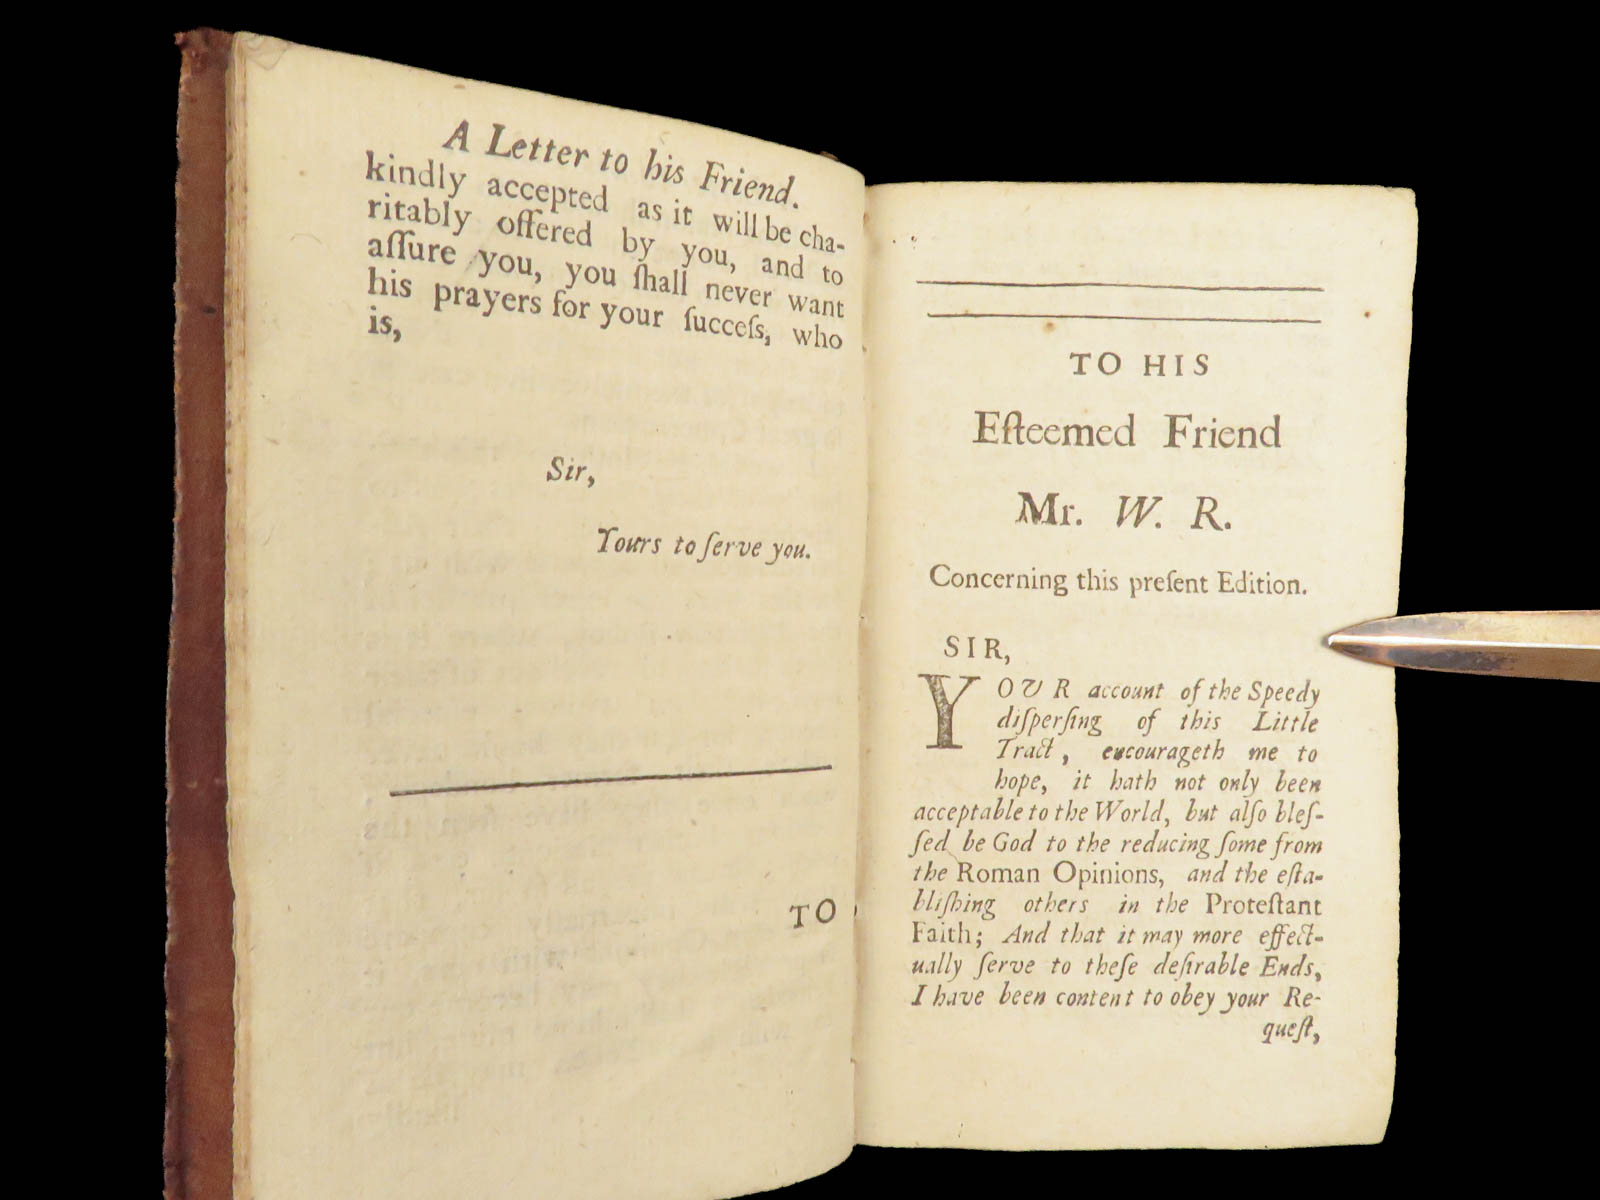 A Letter to his Friend.
kindly accepted as it will be cha-
ritably offered by you, and to
aſſure you, you ſhall never want
his prayers for your ſucceſs, who
is,
Sir,
Yours to ſerve you.
TO
TO HIS
Eſteemed Friend
Mr. W. R.
Concerning this preſent Edition.
SIR,
YOUR account of the Speedy
diſperſing of this Little
Tract, encourageth me to
hope, it hath not only been
acceptable to the World, but alſo bleſ-
ſed be God to the reducing ſome from
the Roman Opinions, and the eſta-
bliſhing others in the Proteſtant
Faith; And that it may more effect-
ually ſerve to theſe deſirable Ends,
I have been content to obey your Re-
queſt,